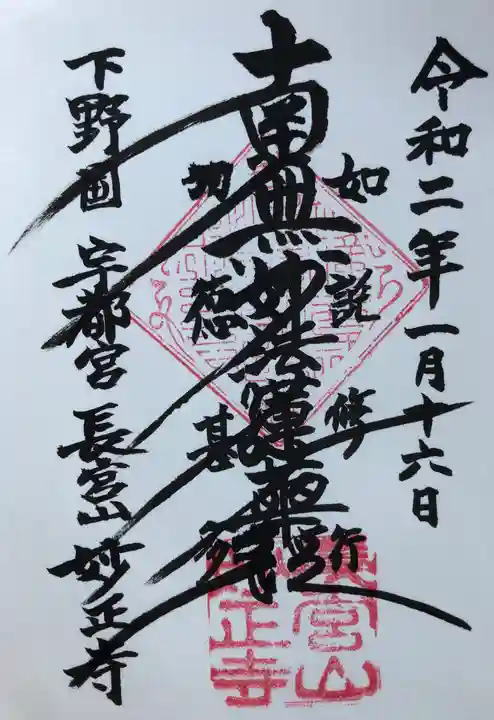 令和二年一月十六日
如説修行
南無妙法蓮華経
功徳甚深
下野国 宇都宮 長宮山 妙正寺
長宮山
妙正寺